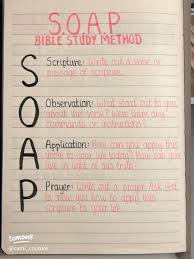 S.O.A.P
BIBLE STUDY METHOD
S Scripture: Write out a verse or
passage of scripture.
O Observation: What stood out to you
about this verse? Were there any
commands or instructions?
A Application: How can you apply this
verse to your life today? How can you
live in light of that truth?
P Prayer: Write out a prayer. Ask God
to show you how to apply this
scripture to your life.
lemon8
@cami_couture